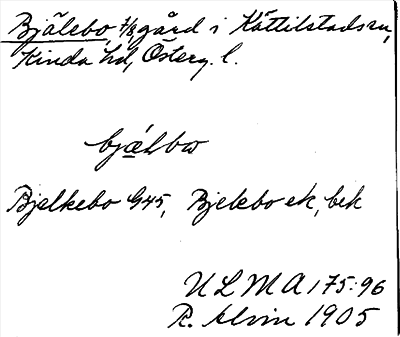 Bjälebo, 7/8 gård i Kättilstads sn,
Kinda hd, Österg. l.
bjǽlbω
Bjelkebo G45, Bjelebo ek, bek
ULMA 175:96
R. Alvin 1905